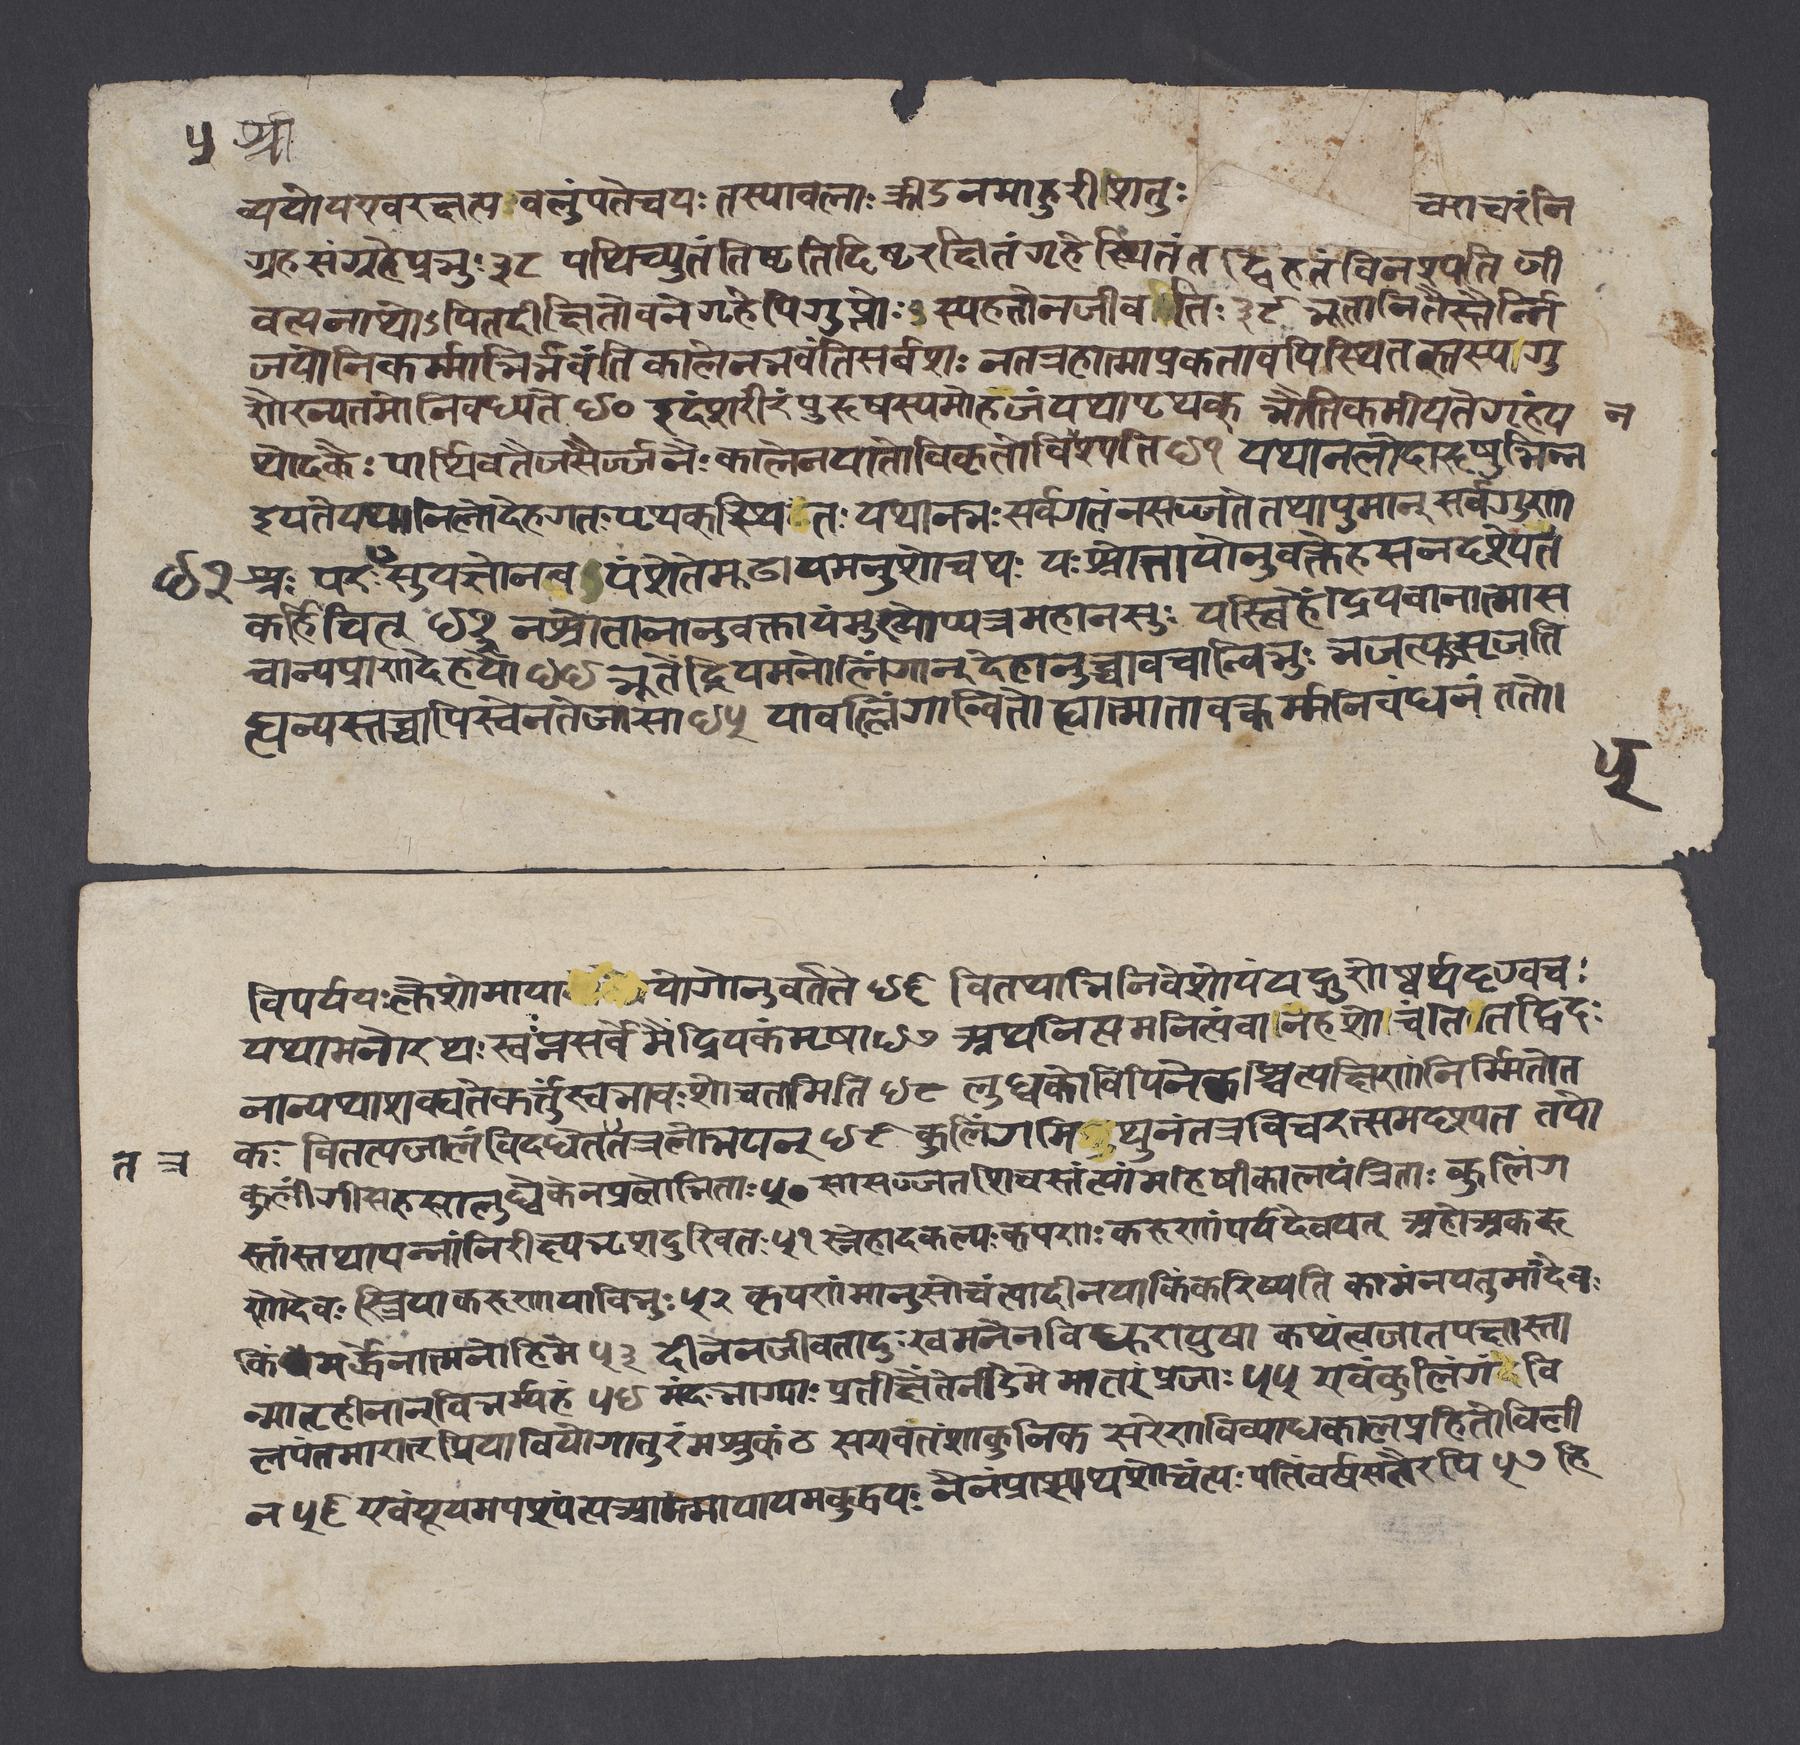 ५ श्री
व्ययोयएवरक्षत्यवलुंपतेचयः तस्यावलाः क्रीडनमाहुरीशितुः चराचरंनि
ग्रहसंग्रहेप्रभुः ३८ पथिच्युतंतिष्टतिदिष्टरक्षितंगृहेस्थितंतद्विहतंविनश्यति जी
वत्यनाथोऽपितदीक्षितोवने गृहेपिगुप्तोःस्यहतोनजीवतिः ३९ भूतानितैस्तैर्निंज
जयोनिकर्म्मभिर्भवंति कालेनभवंतिसर्वशः नतत्रहात्माप्रकतावपिस्थितस्तस्यागु
णैरन्यतमोनिवध्यते ४० इदंशरीरंपुरूषस्यमोहजंयथापृथक भौतिकमीयतेगृहंय न
थोदकैः पार्थिवतैजसैर्ज्जनैः कालेनयातोविकृतोविनश्यति ४१ यथानलोदारूषुभिन्न
इयतेयथानिलोदेहगतःपृथकस्थितः यथानभः सर्वगतंनसज्जतेतथापुमान् सर्वगुणा
४२ श्रः यदः सुयज्ञोनवयंशेतेमूढायमनुशोचथः यःश्रोत्तायोनुवक्तेहसनदृश्येयत
कर्हिचित् ४३ नश्रोतानानुवक्तायंमुख्योप्यत्रमहानसुः यस्त्विहेंद्रियवानात्मास
चान्यप्राणदेहयो ४४ भूतेंद्रियमनोलिंगान् देहानुच्चावचान्विभुः भजत्युत्सृजति
ह्यन्यस्तच्चापिस्वेनतेजासा ४५ यावल्लिंगान्वितोह्यात्मातावत्कर्म्मनिवंधनं ततो।
५
विपर्ययःक्लेशोमायायोगोनुवर्तते ४६ वितथाभिनिवेशोयंयद्गुणेष्वर्थदृग्वचः
यथामनोरथः स्वंप्नसर्वेमैंद्रियकंमृषा ४७ अथनित्यमनित्यंवानेहशोचंतितद्विदः
नान्यथाशक्यतेकर्त्तुंस्वभावःशोचतामिति ४८ लुब्धकोविपिनेकश्चित्पक्षिणांनिर्म्मितोत
कः वितत्यजालंविदधेतत्तत्रलोभयन् ४९ कुलिंगमिथुनंतत्रविचरत्समदृश्यत तयो
त त्र कुलींगीसहसालुब्धेकेनप्रलोभिताः ५० सासज्जतशिचस्तंत्यांमहिषीकालयंत्रिताः कुलिंग
स्तांस्तथापन्नांनिरीक्ष्यभृशदुखितः ५१ स्नेहादकल्पःकृपणः करूणांपर्यदेवयत् अहोअकरू
णोदेवः स्त्रियाकरूणयाविभुः ५२ कृपणंमानुसोचंत्यादीनयाकिंकरिष्यति कामंनयतुमांदेवः
किंमर्द्धेनात्मनोहिमे ५३ दीनेनजीवतादुःखमनेनविधुरायुषा कथंत्वजातपक्षास्ता
न्मातृहीनान्विभर्म्यहं ५४ मंदभाग्याः प्रतीक्षंतेनीडेमेमातरंप्रजाः ५५ एवंकुलिंगंवि
लपंतमारात्प्रियावियोगातुरंमश्रुकंठ सएवतंशाकुनिक सरेणविव्याधकालप्रहितोविली
न ५६ एवंयूयमपश्यंत्यआत्मापायमवुद्धयः नैनंप्राप्स्यथशोचंत्यः पतिंवर्षसतैरपि ५७ हि